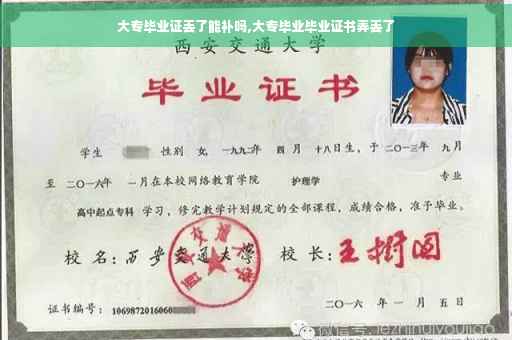 大专毕业证丢了能补吗,大专毕业毕业证书弄丢了
西安交通大学
毕业证书
学生 性别 女, 一九九二年 四 月 十八日生, 于 二〇一三年 九月
至 二〇一六年 一月在本校网络教育学院 护理学 专业
高中起点专科 学习, 修完教学计划规定的全部课程, 成绩合格, 准予毕业。
校 名: 西安交通大学
校 长: 王树国
西安交通大学
证书编号: 1069872016060
二〇一六 年 一 月 五 日
微信号: jiezhinuiyoujiao